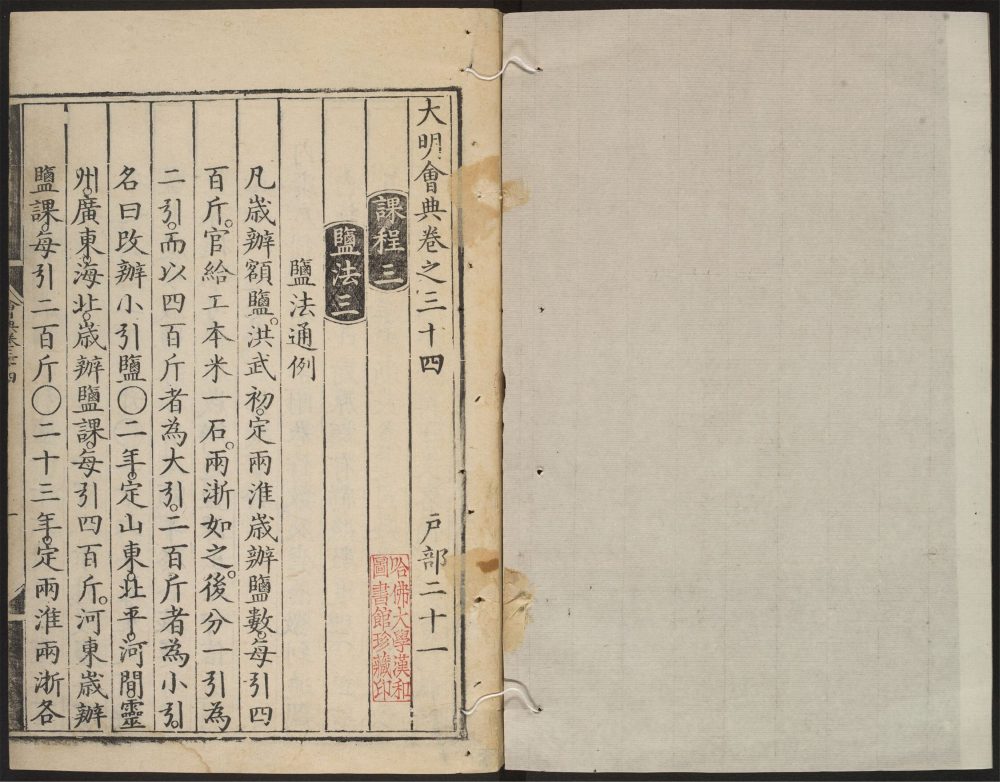 大明會典卷之三十四 戶部二十一
課程三
鹽法三
鹽法通例
凡歲辦額鹽。洪武初。定兩淮歲辦鹽數。每引四
百斤。官給工本米一石。兩浙如之。後分一引為
二引。而以四百斤者為大引。二百斤者為小引。
名曰改辦小引鹽〇二年。定山東。北平。河間靈
州。廣東。海北。歲辦鹽課。每引四百斤。河東歲辦
鹽課。每引二百斤〇二十三年。定兩淮兩浙各
哈佛大學漢和
圖書館珍藏印